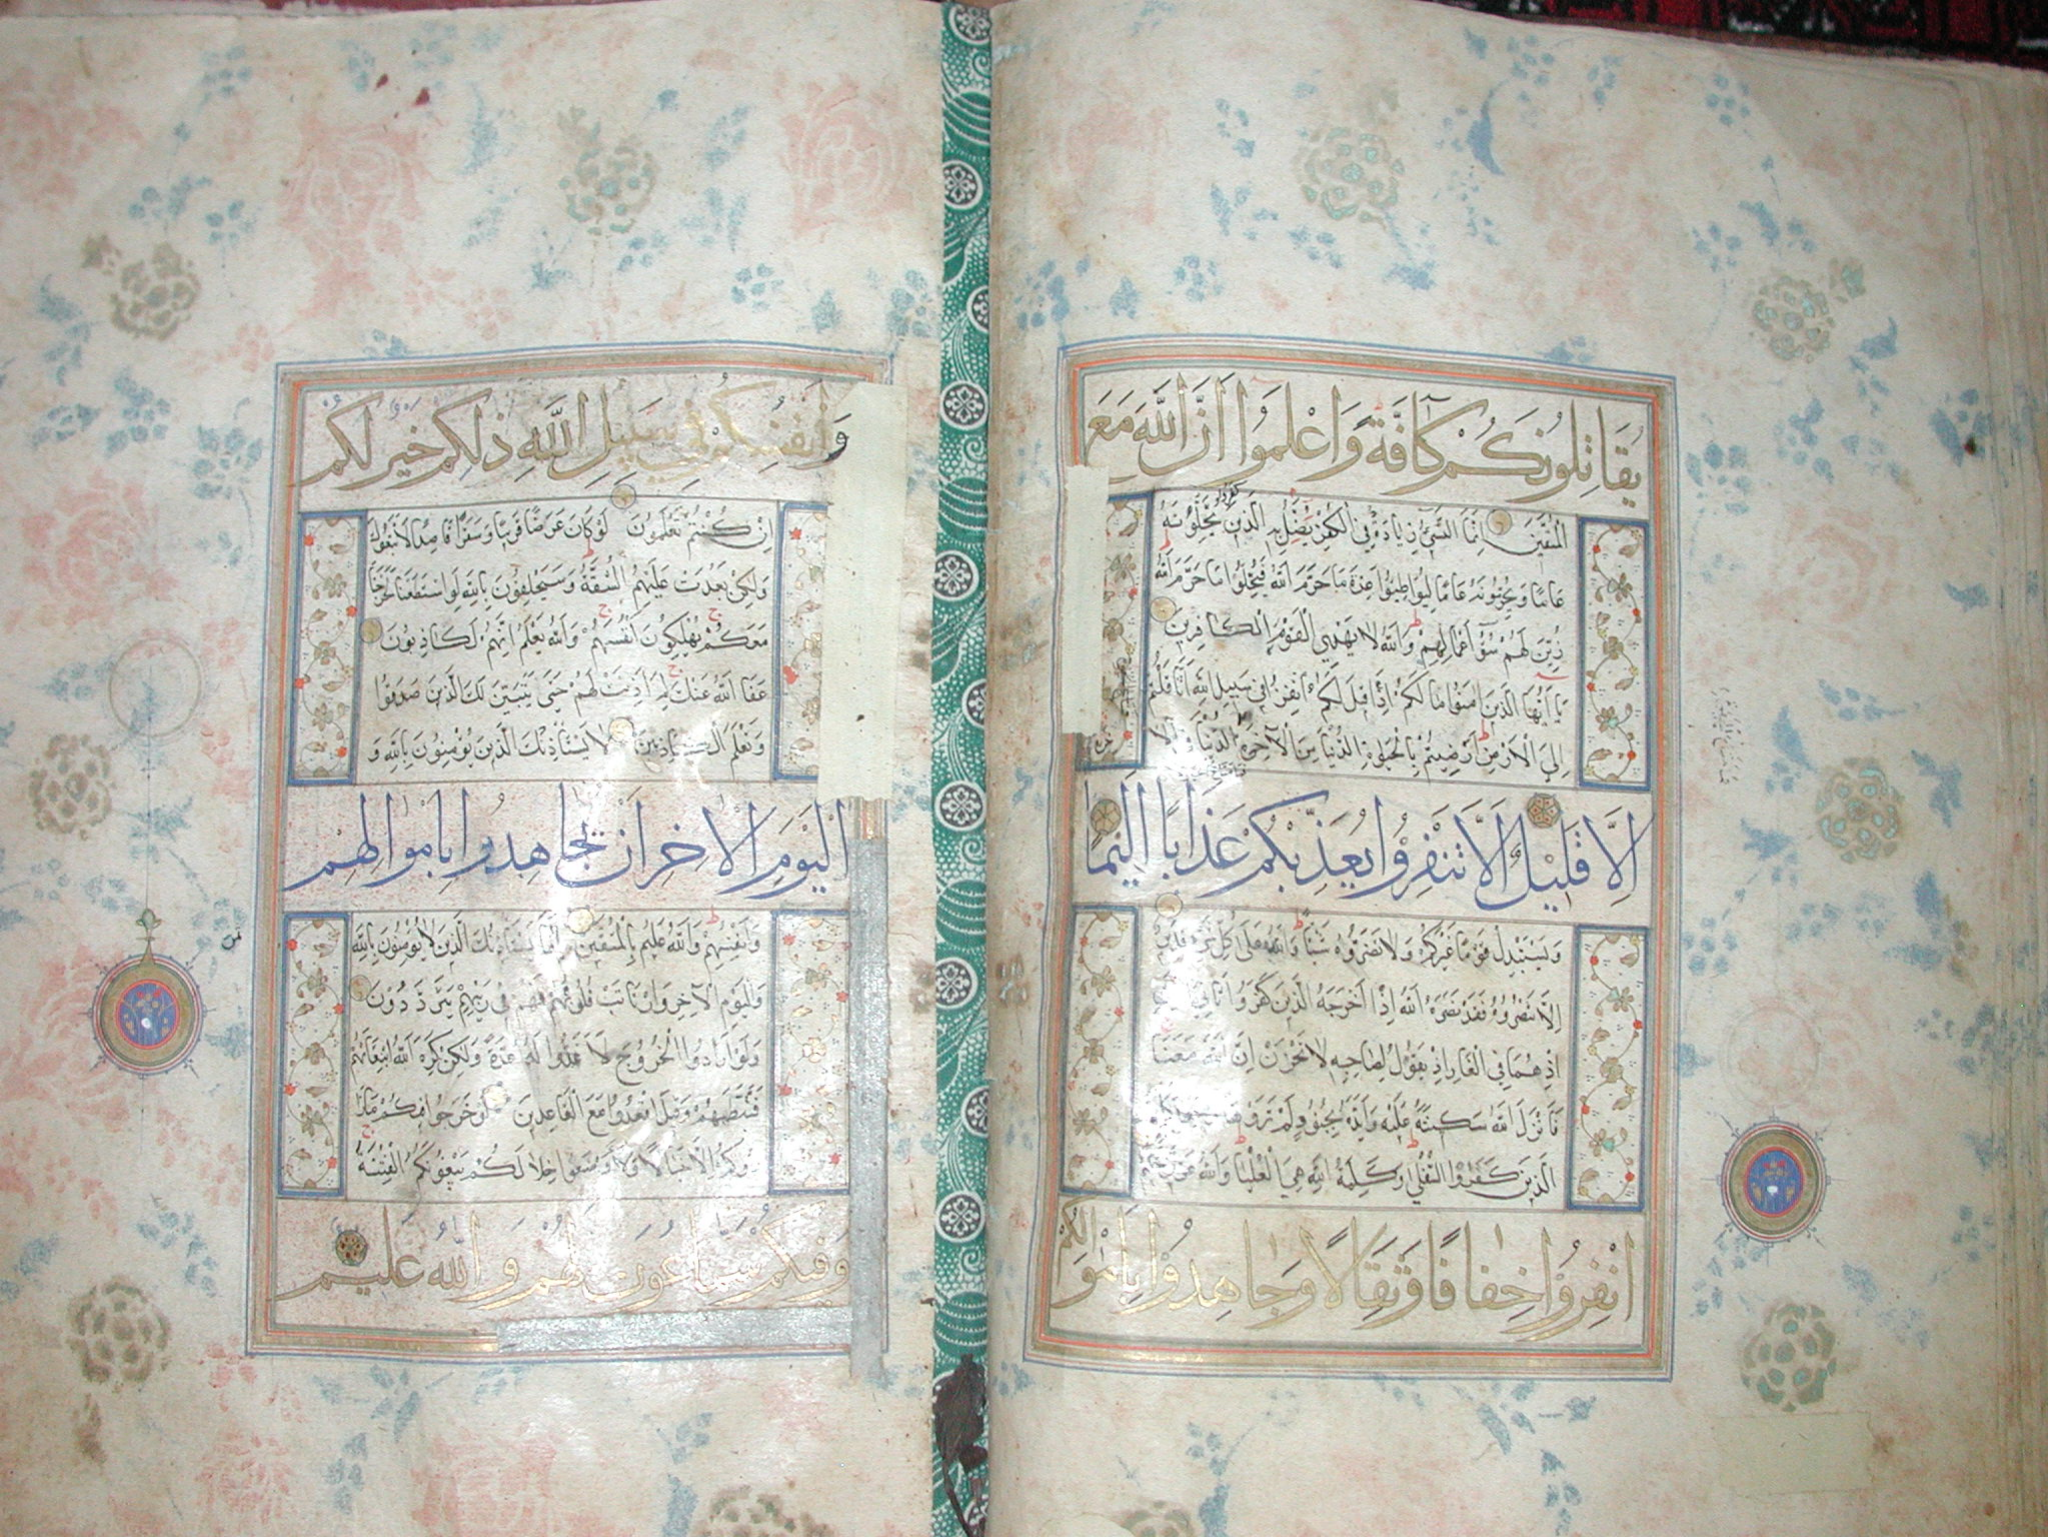 يُقَاتِلُونَكُمْ كَآفَّةً وَاعْلَمُوا أَنَّ اللَّهَ مَعَ
الْمُتَّقِينَ إِنَّمَا النَّسِيُّ زِيَادَةٌ فِي الْكُفْرِ يُضَلُّ بِهِ الَّذِينَ كفروا يُحِلُّونَهُ
عَامًا وَيُحَرِّمُونَهُ عَامًا لِيُوَاطِئُوا عِدَّةَ مَا حَرَّمَ اللَّهُ فَيُحِلُّوا مَا حَرَّمَ اللَّهُ
زُيِّنَ لَهُمْ سُوءُ أَعْمَالِهِمْ وَاللَّهُ لَا يَهْدِي الْقَوْمَ الْكَافِرِينَ
يَا أَيُّهَا الَّذِينَ آمَنُوا مَا لَكُمْ إِذَا قِيلَ لَكُمُ انْفِرُوا فِي سَبِيلِ اللَّهِ اثَّاقَلْتُمْ
إِلَى الْأَرْضِ أَرَضِيتُمْ بِالْحَيَوةِ الدُّنْيَا مِنَ الْآخِرَةِ الدُّنْيَا
إِلَّا قَلِيلٌ إِلَّا تَنْفِرُوا يُعَذِّبْكُمْ عَذَابًا أَلِيمًا
وَيَسْتَبْدِلْ قَوْمًا غَيْرَكُمْ وَلَا تَضُرُّوهُ شَيْئًا وَاللَّهُ عَلَى كُلِّ شَيْءٍ قَدِيرٌ
إِلَّا تَنْصُرُوهُ فَقَدْ نَصَرَهُ اللَّهُ إِذْ أَخْرَجَهُ الَّذِينَ كَفَرُوا ثَانِيَ
إِذْ هُمَا فِي الْغَارِ إِذْ يَقُولُ لِصَاحِبِهِ لَا تَحْزَنْ إِنَّ اللَّهَ مَعَنَا
فَأَنْزَلَ اللَّهُ سَكِينَتَهُ عَلَيْهِ وَأَيَّدَهُ بِجُنُودٍ لَمْ تَرَوْهَا
الَّذِينَ كَفَرُوا السُّفْلَى وَكَلِمَةُ اللَّهِ هِيَ الْعُلْيَا وَاللَّهُ عَزِيزٌ
انْفِرُوا خِفَافًا وَثِقَالًا وَجَاهِدُوا بِأَمْوَالِكُمْ
وَأَنْفُسِكُمْ فِي سَبِيلِ اللَّهِ ذَلِكُمْ خَيْرٌ لَكُمْ
إِنْ كُنْتُمْ تَعْلَمُونَ لَوْ كَانَ عَرَضًا قَرِيبًا وَسَفَرًا قَاصِدًا لَاتَّبَعُوكَ
وَلَكِنْ بَعُدَتْ عَلَيْهِمُ الشُّقَّةُ وَسَيَحْلِفُونَ بِاللَّهِ لَوِ اسْتَطَعْنَا لَخَرَجْنَا
مَعَكُمْ يُهْلِكُونَ أَنْفُسَهُمْ وَاللَّهُ يَعْلَمُ إِنَّهُمْ لَكَاذِبُونَ
عَفَا اللَّهُ عَنْكَ لِمَ أَذِنْتَ لَهُمْ حَتَّى يَتَبَيَّنَ لَكَ الَّذِينَ صَدَقُوا
وَتَعْلَمَ الْكَاذِبِينَ لَا يَسْتَأْذِنُكَ الَّذِينَ يُؤْمِنُونَ بِاللَّهِ وَ
الْيَوْمِ الْآخِرِ أَنْ يُجَاهِدُوا بِأَمْوَالِهِمْ
وَأَنْفُسِهِمْ وَاللَّهُ عَلِيمٌ بِالْمُتَّقِينَ إِنَّمَا يَسْتَأْذِنُكَ الَّذِينَ لَا يُؤْمِنُونَ بِاللَّهِ
وَالْيَوْمِ الْآخِرِ وَارْتَابَتْ قُلُوبُهُمْ فَهُمْ فِي رَيْبِهِمْ يَتَرَدَّدُونَ
وَلَوْ أَرَادُوا الْخُرُوجَ لَأَعَدُّوا لَهُ عُدَّةً وَلَكِنْ كَرِهَ اللَّهُ انْبِعَاثَهُمْ
فَثَبَّطَهُمْ وَقِيلَ اقْعُدُوا مَعَ الْقَاعِدِينَ لَوْ خَرَجُوا فِيكُمْ مَا زَا
دُوكُمْ إِلَّا خَبَالًا وَلَأَوْضَعُوا خِلَالَكُمْ يَبْغُونَكُمُ الْفِتْنَةَ
وَفِيكُمْ سَمَّاعُونَ لَهُمْ وَاللَّهُ عَلِيمٌ